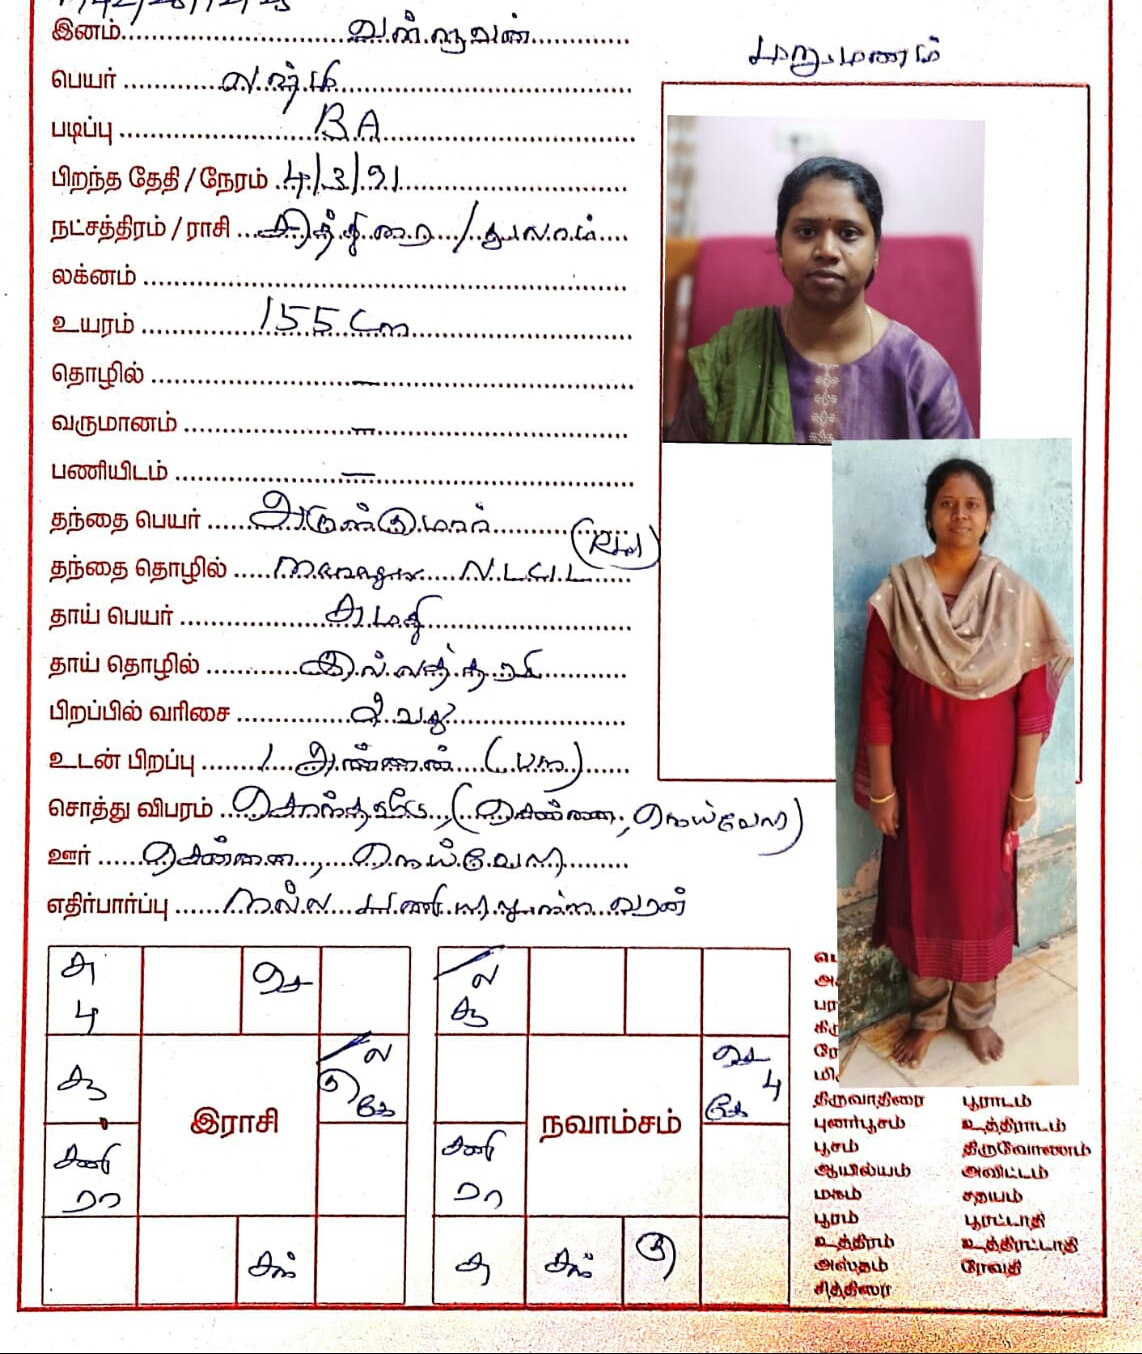 இனம் வள்ளுவன்
மறுமணம்
பெயர் லஷ்மி
படிப்பு BA
பிறந்த தேதி / நேரம் 4/3/91
நட்சத்திரம் / ராசி சித்திரை / துலாம்
லக்னம்
உயரம் 155 Cm
தொழில் —
வருமானம் —
பணியிடம் —
தந்தை பெயர் அருண்குமார்
தந்தை தொழில் Manager N.L.C.I.L (Rtd)
தாய் பெயர்
தாய் தொழில் இல்லத்தரசி
பிறப்பில் வரிசை 2 வது
உடன் பிறப்பு 1 அண்ணன்
சொத்து விபரம் சொந்தவீடு (சென்னை, நெய்வேலி)
ஊர் சென்னை, நெய்வேலி
எதிர்பார்ப்பு நல்ல பணியிலுள்ள வரன்
சு செ ல
பு சூ
சூ ல செ
கு கே பு
இராசி நவாம்சம் கே
சனி சனி
ரா ரா
சந் சு சந் கு
திருவாதிரை பூராடம்
புனர்பூசம் உத்திராடம்
பூசம் திருவோணம்
ஆயில்யம் அவிட்டம்
மகம் சதயம்
பூரம் பூரட்டாதி
உத்திரம் உத்திரட்டாதி
அஸ்தம் ரேவதி
சித்திரை